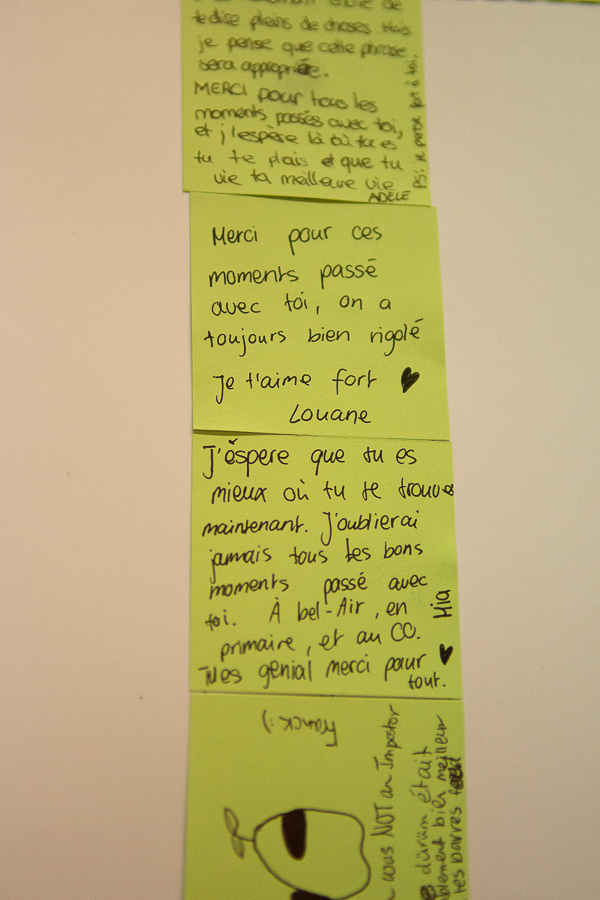 te dise pleins de choses. Mais
je pense que cette phrase
sera appropriée.
MERCI pour tous les
moments passés avec toi,
et j'espère là où tu es
tu te plais et que tu
vie ta meilleure vie
ADÈLE
PS: je pense fort à toi.
Merci pour ces
moments passé
avec toi, on a
toujours bien rigolé
Je t'aime fort
Louane
J'éspere que tu es
mieux où tu te trouves
maintenant. J'oublierai
jamais tous les bons
moments passé avec
toi. À bel-Air, en
primaire, et au CO.
Tu es génial merci pour
tout.
Mia
Franck:)
was NOT an Impostor
dürüm était
bien meilleur
tes barres